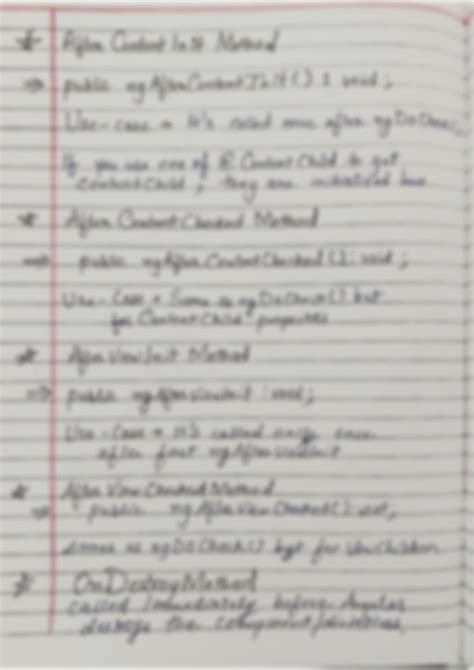 After Content Init Method
public ngAfterContentInit() : void;
Use-case → It's called once after ngDoCheck
If you use one of @ContentChild to get
ContentChild, they are initialized here
After Content Checked Method
public ngAfterContentChecked(): void;
Use-Case → Same as ngDoCheck() but
for ContentChild properties
AfterViewInit Method
public ngAfterViewInit : void;
Use-Case → It's called only once
after first ngAfterViewInit
After View Checked Method
public ngAfterViewChecked(): void;
same as ngDoCheck() but for ViewChildren
OnDestroy Method
called immediately before Angular
destroys the component/directives.